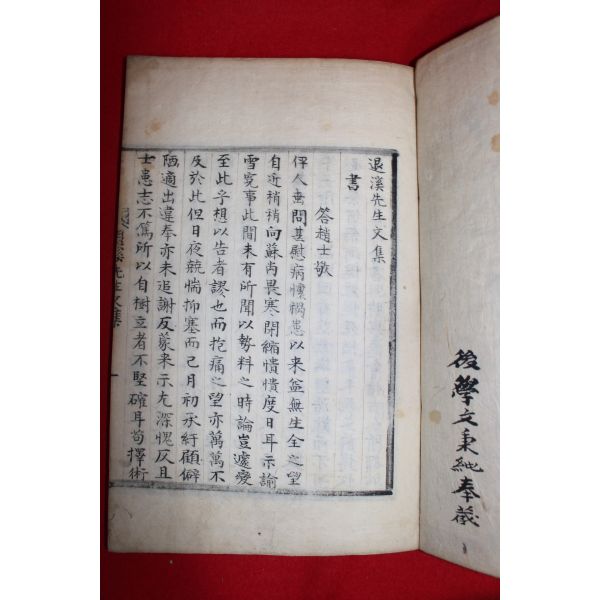 後學文秉純奉藏
退溪先生文集
書
答趙士敬
伻人垂問甚慰病懷禍患以来益無生全之望
自近稍稍向蘇尚畏寒閉縮憒憒度日耳示諭
雪寃事此間未有所聞以勢料之時論豈遽變
至此乎想以告者謬也而抱痛之望亦萬萬不
及於此但日夜兢惴抑塞而已月初承紆顧僻
陋適出違奉亦未追謝反蒙来示尤深愧仄且
士患志不篤所以自樹立者不堅確耳苟擇術
先生文集